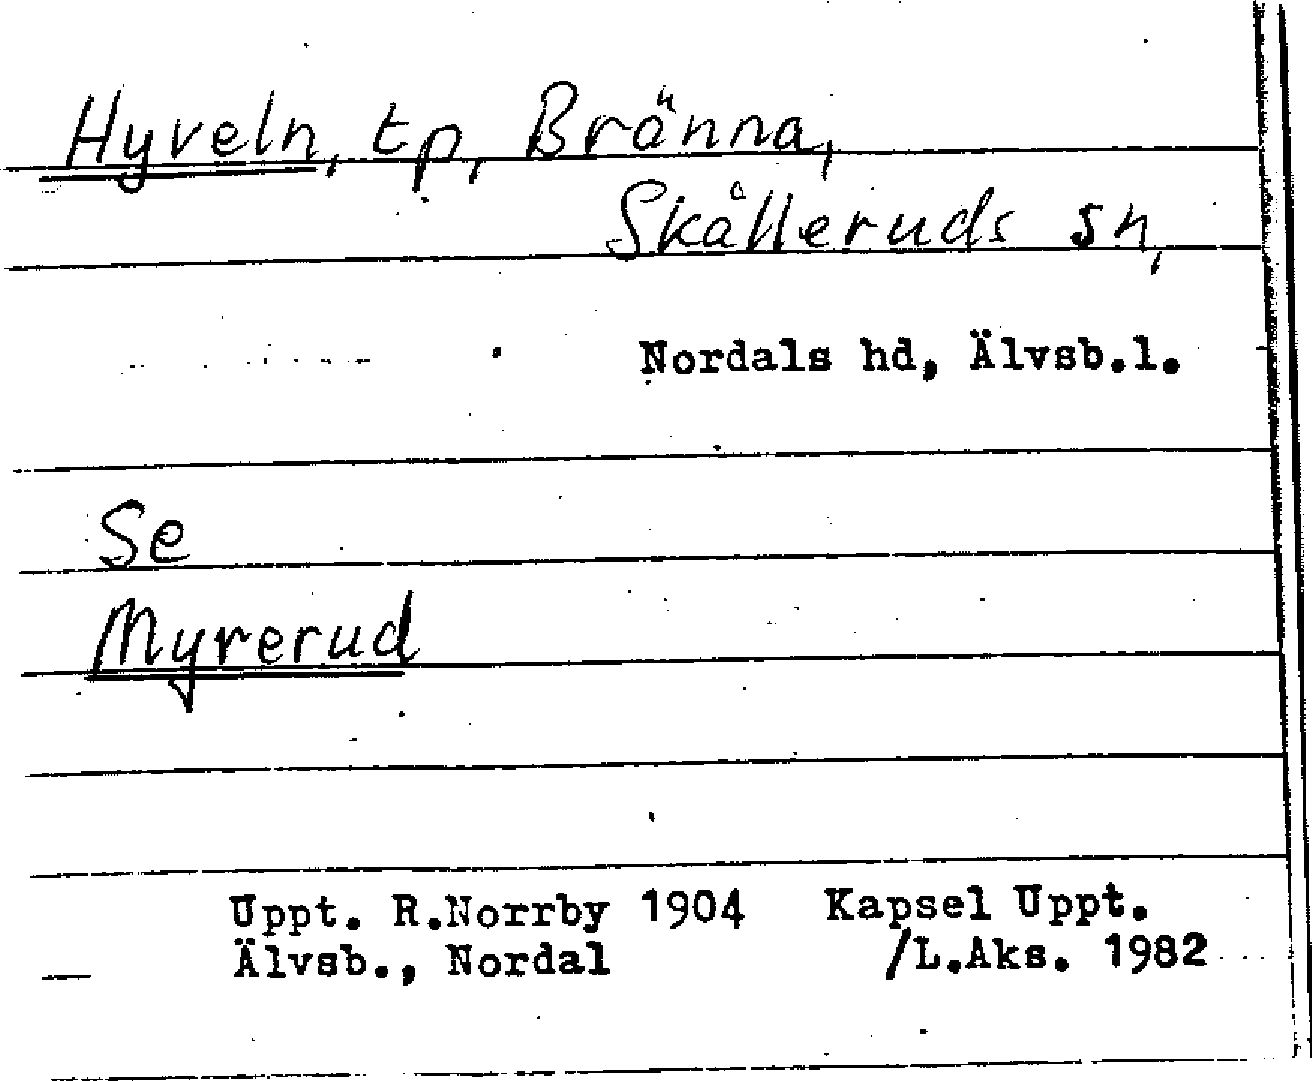 Hyveln, tp, Bränna,
Skålleruds sn,
Nordals hd, Älvsb.l.
Se
Myrerud
Uppt. R.Norrby 1904 Kapsel Uppt.
Älvsb., Nordal /L.Aks. 1982